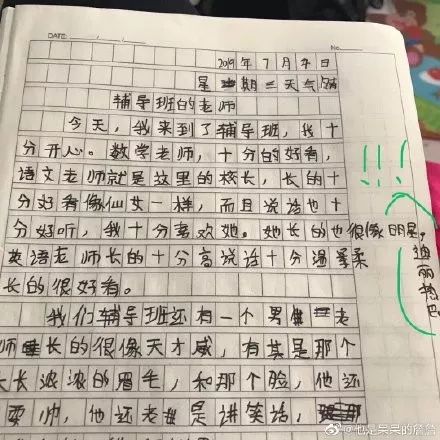 DATE
No.
2019年7月7日
星期三天气晴
辅导班的老师
今天，我来到了辅导班，我十
分开心。数学老师，十分的好看，
语文老师就是这里的校长，长的十
分好看像仙女一样，而且说话也十
分好听，我十分喜欢她。她长的也很像明星，
迪丽热巴
英语老师长的十分高说话十分温柔
长的很好看。
我们辅导班还有一个男老
师长的很像天才威，有其是那个
长长浓浓的眉毛，和那个脸，他还
耍帅，他还老是讲笑话，
@也是果果的詹詹